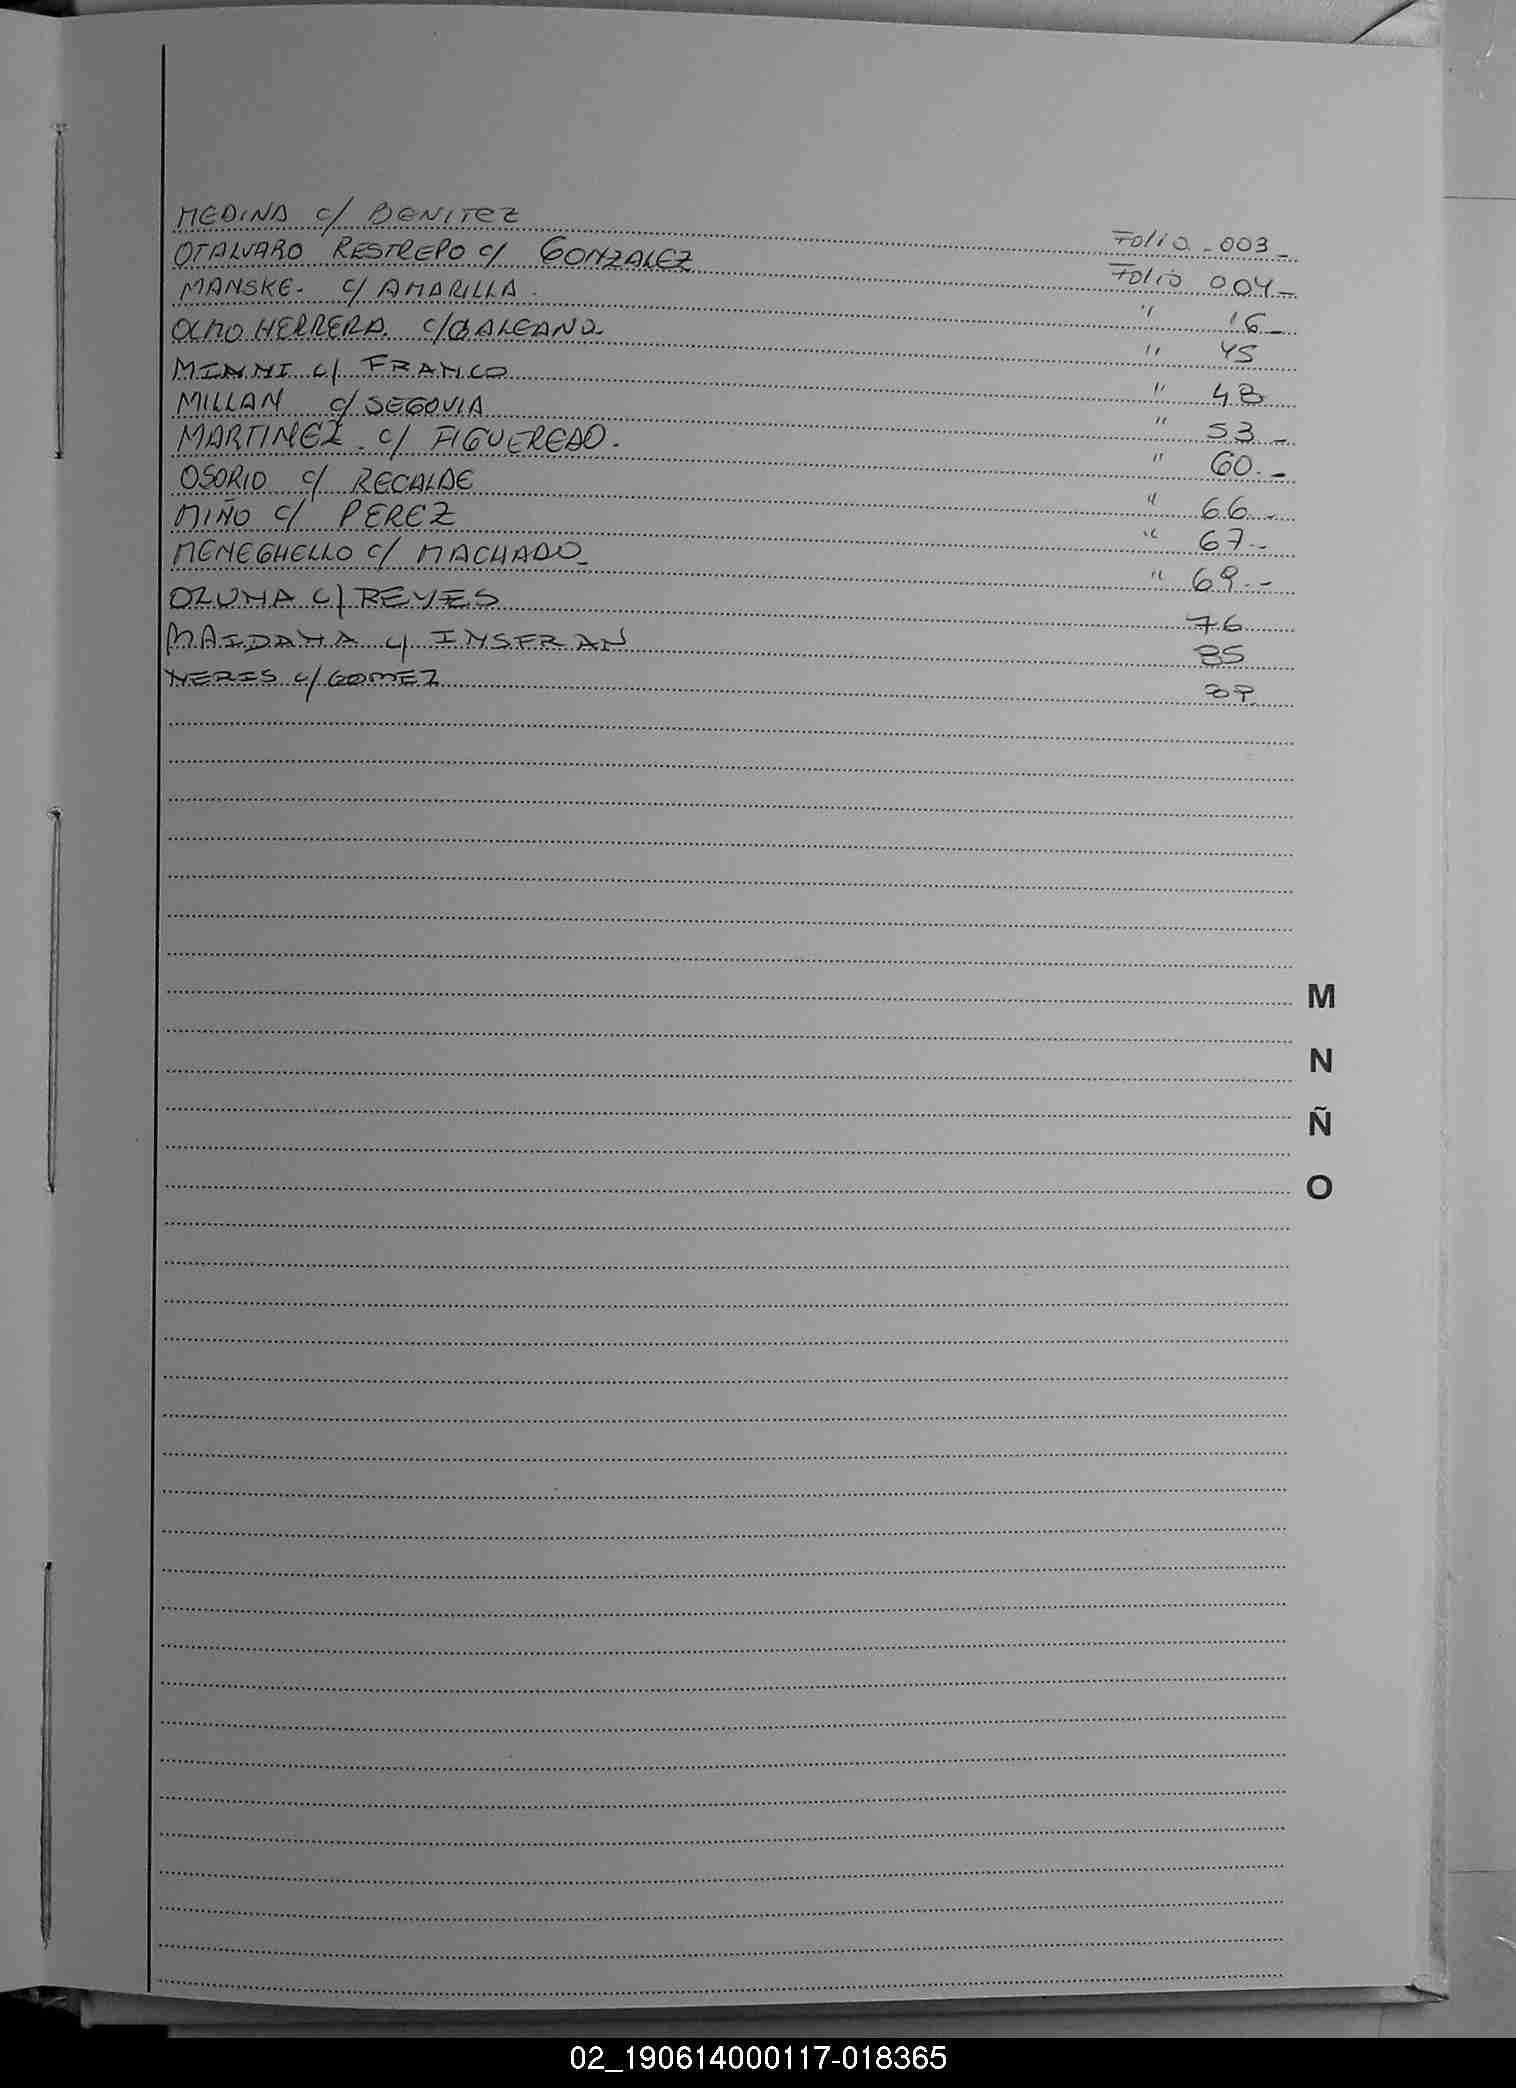 MEDINA c/ BENITEZ Folio - 003 -
OTALVARO RESTREPO c/ GONZALEZ Folio 004 -
MANSKE - c/ AMARILLA - " 16 -
OLMO HERRERA c/ GALEANO - " 45
MINNI c/ FRANCO " 48
MILLAN c/ SEGOVIA " 53 -
MARTINEZ c/ FIGUEREDO - " 60 -
OSORIO c/ RECALDE " 66 -
MIÑO c/ PEREZ " 67 -
MENEGHELLO c/ MACHADO - " 69 -
OZUNA c/ REYES 76
MAIDANA c/ INSFRAN 85
NERIS c/ GOMEZ
M
N
Ñ
O
02_190614000117-018365